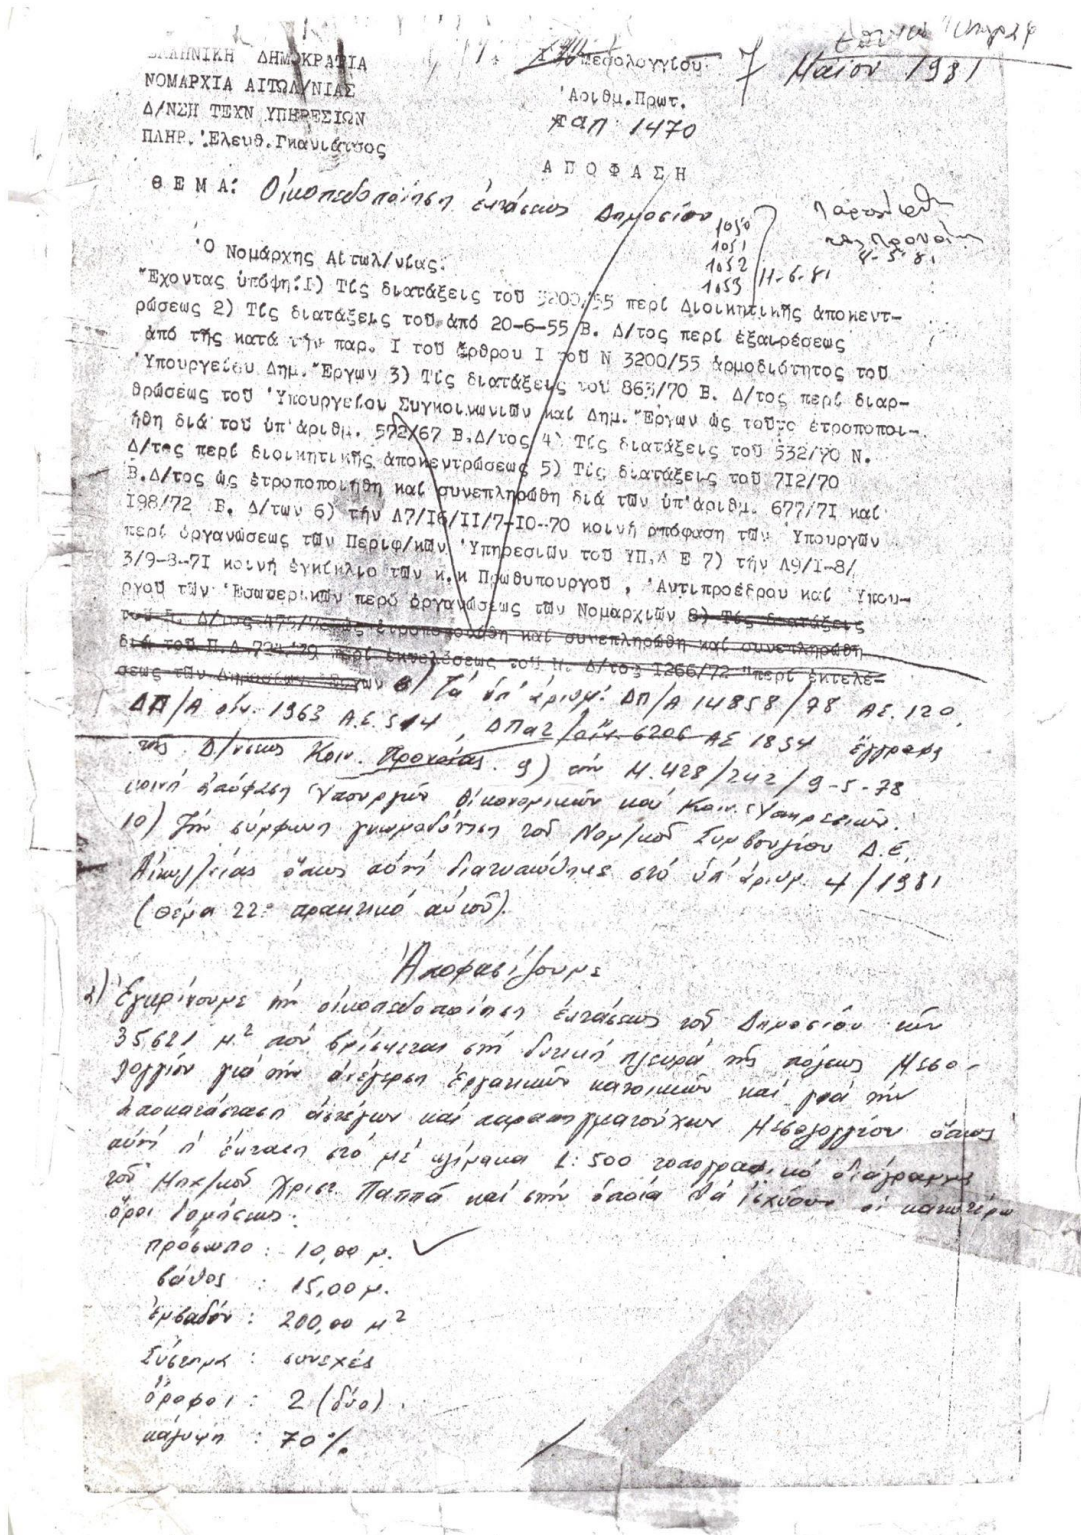 ΕΛΛΗΝΙΚΗ ΔΗΜΟΚΡΑΤΙΑ
ΝΟΜΑΡΧΙΑ ΑΙΤΩΛ/ΝΙΑΣ
Δ/ΝΣΗ ΤΕΧΝ ΥΠΗΡΕΣΙΩΝ
ΠΛΗΡ. Ἐλευθ. Γκανιάτσος
Μεσολογγίου 7 Μαίου 1981
Ἀριθμ.Πρωτ.
ΤΑΠ 1470
ΑΠΟΦΑΣΗ
ΘΕΜΑ: Οἰκοπεδοποίηση ἐκτάσεως Δημοσίου
1050
1051
1052
1053
11-6-81
8-5-81
Ὁ Νομάρχης Αἰτωλ/νίας.
Ἔχοντας ὑπόψη: Ι) Τίς διατάξεις τοῦ 3200/55 περί Διοικητικῆς ἀποκεντ-
ρώσεως 2) Τίς διατάξεις τοῦ ἀπό 20-6-55 Β. Δ/τος περί ἐξαιρέσεως
ἀπό τῆς κατά τήν παρ. Ι τοῦ ἄρθρου Ι τοῦ Ν 3200/55 ἁρμοδιότητος τοῦ
Ὑπουργείου Δημ. Ἔργων 3) Τίς διατάξεις τοῦ 863/70 Β. Δ/τος περί διαρ-
θρώσεως τοῦ Ὑπουργείου Συγκοινωνιῶν καί Δημ. Ἔργων ὡς τοῦτο ἐτροποποι-
ήθη διά τοῦ ὑπ'ἀριθμ. 572/67 Β.Δ/τος 4) Τίς διατάξεις τοῦ 532/70 Ν.
Δ/τος περί διοικητικῆς ἀποκεντρώσεως 5) Τίς διατάξεις τοῦ 7Ι2/70
Β.Δ/τος ὡς ἐτροποποιήθη καί συνεπληρώθη διά τῶν ὑπ'ἀριθμ. 677/7Ι καί
Ι98/72 Β. Δ/των 6) τήν Λ7/Ι6/ΙΙ/7-Ι0-70 κοινή ἀπόφαση τῶν Ὑπουργῶν
περί ὀργανώσεως τῶν Περιφ/κῶν Ὑπηρεσιῶν τοῦ ΥΠ.Δ Ε 7) τήν Λ9/Ι-8/
3/9-8-7Ι κοινή ἐγκύκλιο τῶν κ.κ Πρωθυπουργοῦ, Ἀντιπροέδρου καί Ὑπου-
ργοῦ τῶν Ἐσωτερικῶν περί ὀργανώσεως τῶν Νομαρχιῶν 8) Τίς διατάξεις
τοῦ Δ/τος 475/ ὡς ἐτροποποιήθη καί συνεπληρώθη καί συνεπληρώθη
διά τοῦ Π.Δ. 724/79 περί ἐκτελέσεως τοῦ Ν. Δ/τος Ι266/72 "περί ἐκτελέ-
σεως τῶν Δημοσίων Ἔργων 8) Τά ὑπ' ἀριθμ. ΔΠ/Α 14858/78 ΑΣ. 120,
ΔΠ/Α οἰκ. 1963 Α.Σ. 514, ΔΠα2/οἰκ. 6206 ΑΣ 1854 ἔγγραφα
τῆς Δ/νσεως Κοιν. Προνοίας. 9) τήν Η.428/242/9-5-78
κοινή ἀπόφαση Ὑπουργῶν Οἰκονομικῶν καί Κοιν. Ὑπηρεσιῶν.
10) Τήν σύμφωνη γνωμοδότηση τοῦ Νομ/κοῦ Συμβουλίου Δ.Ε.
Αἰτωλ/νίας ὅπως αὐτή διατυπώθηκε στό ὑπ' ἀριθμ. 4/1981
(θέμα 22ο πρακτικό αὐτοῦ).
Ἀποφασίζουμε
1) Ἐγκρίνουμε τήν οἰκοπεδοποίηση ἐκτάσεως τοῦ Δημοσίου τῶν
35.621 μ.² πού βρίσκεται στή δυτική πλευρά τῆς πόλεως Μεσο-
λογγίου γιά τήν ἀνέγερση ἐργατικῶν κατοικιῶν καί γιά τήν
ἀποκατάσταση ἀστέγων καί παραπηγματούχων Μεσολογγίου ὅπως
αὐτή ἡ ἔκταση στό μέ κλίμακα 1:500 τοπογραφικό διάγραμμα
τοῦ Μηχ/κοῦ Χρίστ. Παππᾶ καί στήν ὁποία θά ἰσχύσουν οἱ κατωτέρω
ὅροι δομήσεως:
πρόσωπο : 10,00 μ.
βάθος : 15,00 μ.
ἐμβαδόν : 200,00 μ²
Σύστημα : συνεχές
ὄροφοι : 2 (δύο)
κάλυψη : 70%